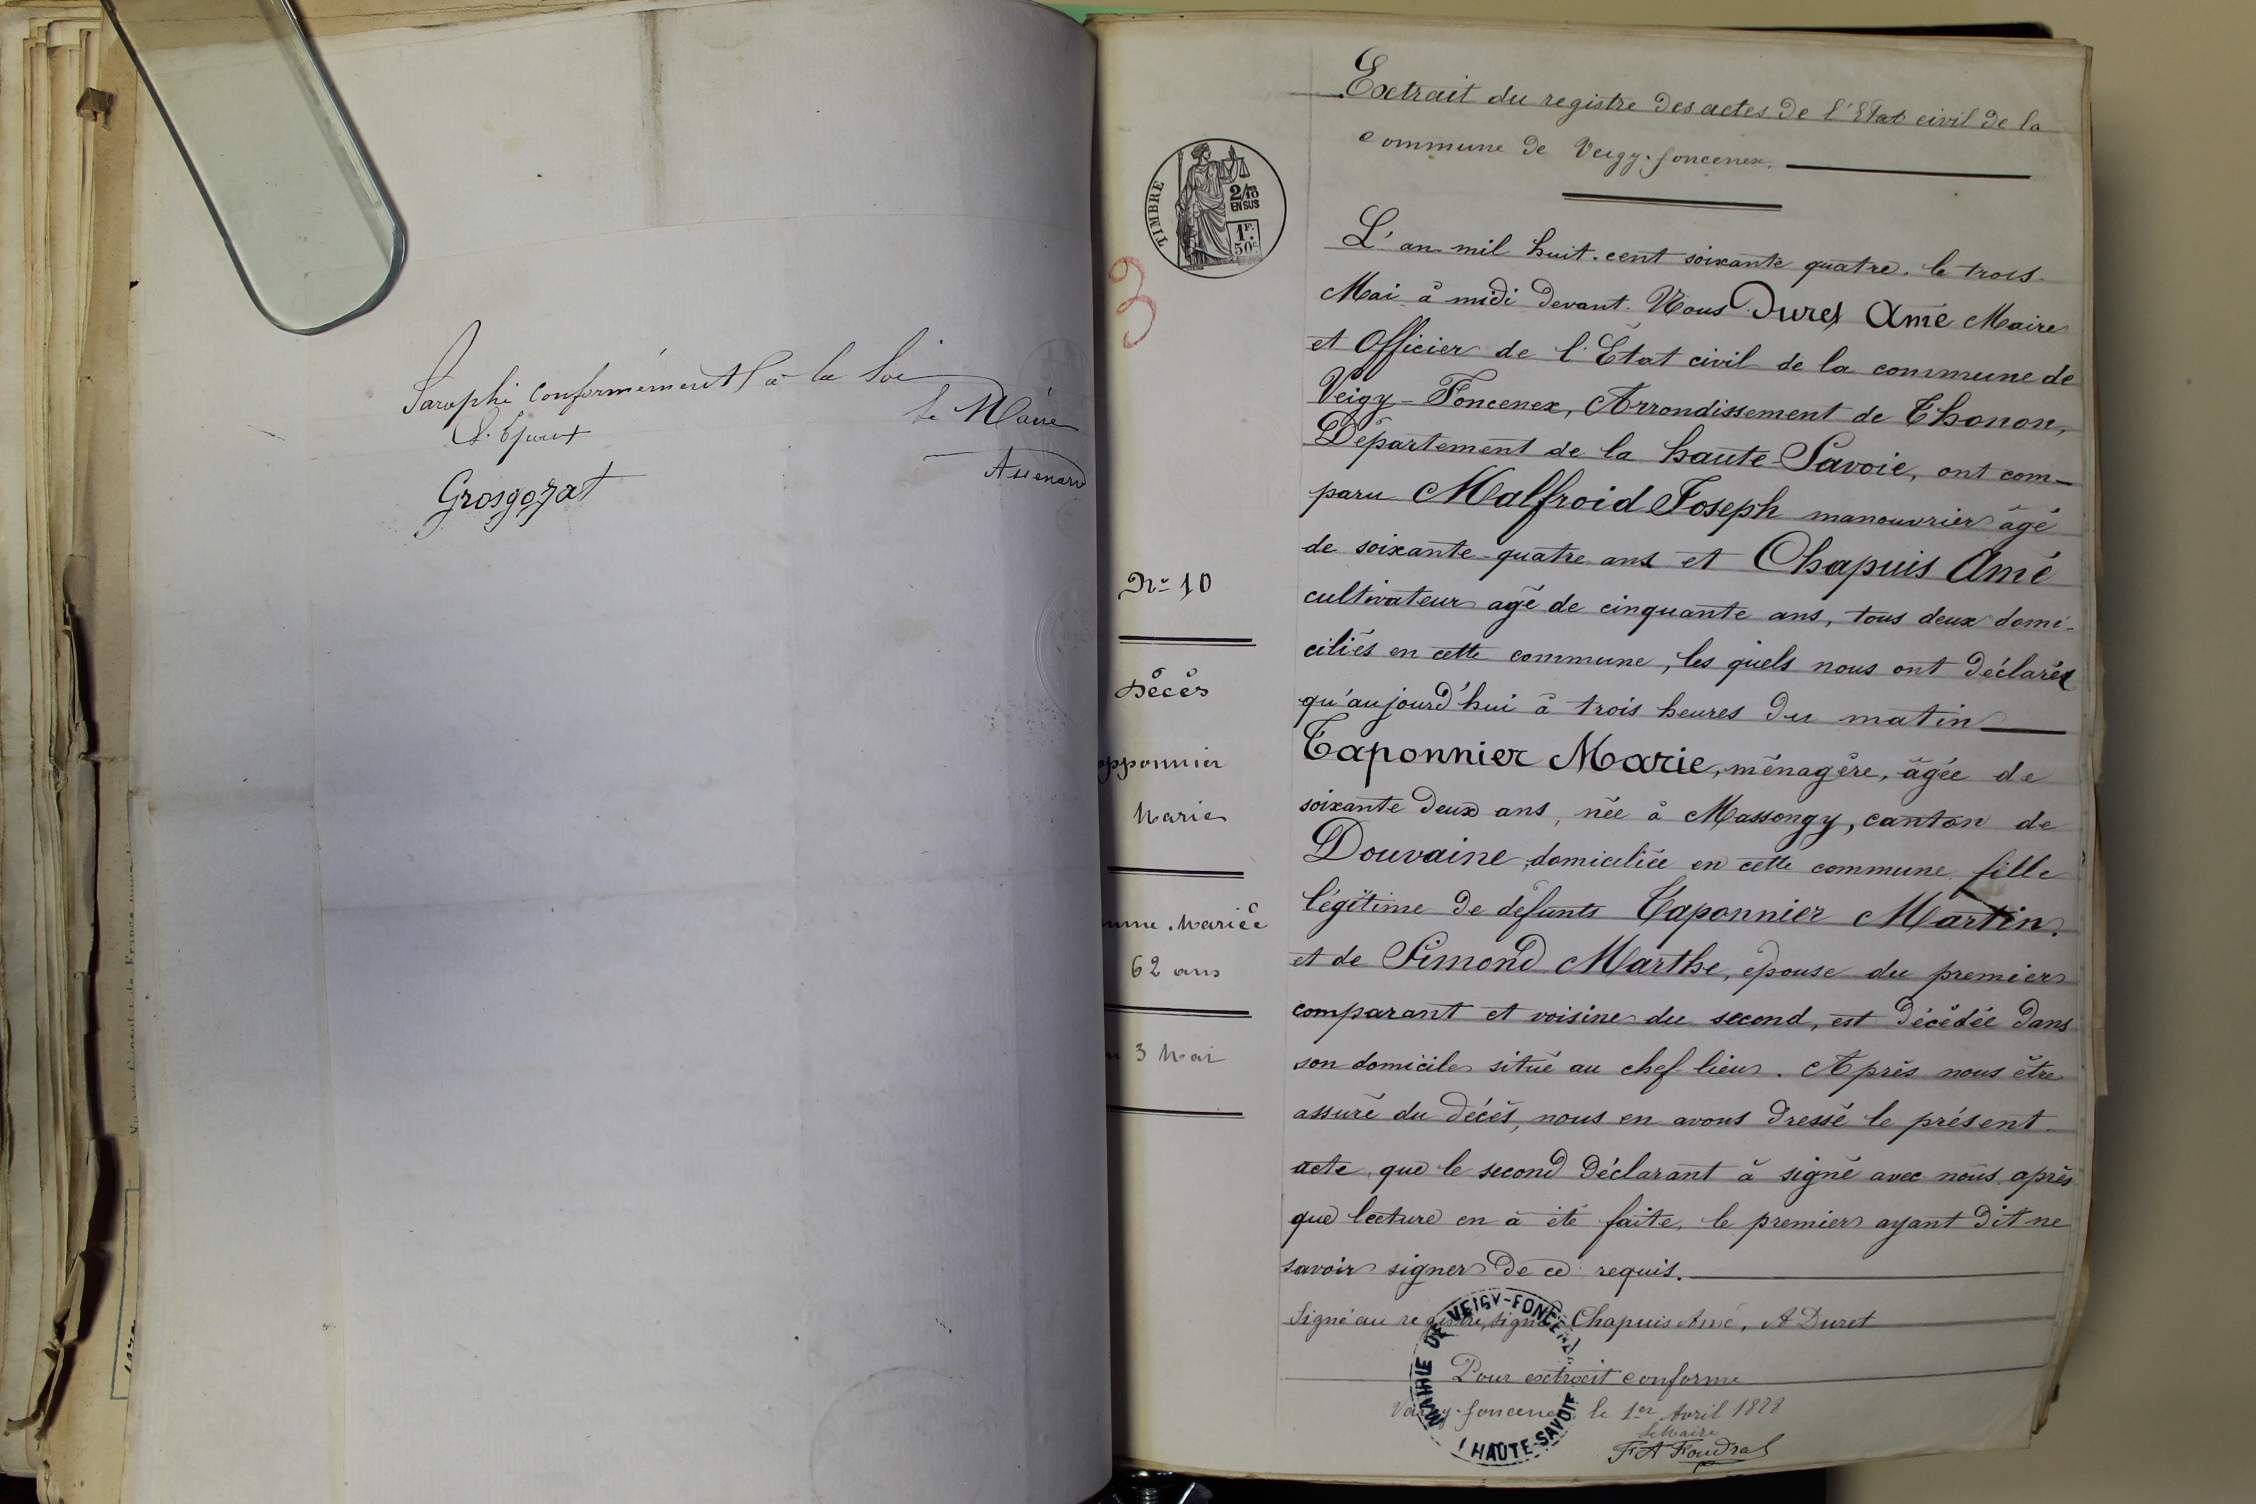 Paraphé conformément à la loi
Le Maire
Grosgozat
Extrait du registre des actes de l'Etat civil de la
commune de Veigy-foncenex.
TIMBRE
2/10
EN SUS
1F.
50c
3
L'an mil huit-cent soixante quatre. le trois
Mai à midi devant. Nous Duret Amé Maire
et Officier de l'État civil de la commune de
Veigy-Foncenex, Arrondissement de Thonon,
Département de la haute-Savoie, ont com-
paru Malfroid Joseph manouvrier âgé
de soixante-quatre ans et Chapuis Amé
cultivateur agé de cinquante ans, tous deux domi-
ciliés en cette commune, les quels nous ont déclarés
qu'aujourd'hui à trois heures du matin
Taponnier Marie, ménagère, âgée de
soixante deux ans, née à Massongy, canton de
Douvaine, domiciliée en cette commune fille
légitime de défunts Taponnier Martin.
et de Simond Marthe, épouse du premier
comparant et voisine du second, est décédée dans
son domicile situé au chef lieu. Après nous être
assuré du décès, nous en avons dressé le présent
acte, que le second déclarant à signé avec nous, après
que lecture en à été faite, le premier ayant dit ne
savoir signer de ce requis.
Signé au registre, signé Chapuis Amé, A Duret
Pour extrait conforme
Veigy-foncenex le 1er Avril 1878
Le Maire
FA Foudral
MAIRIE DE VEIGY-FONCENEX
HAUTE-SAVOIE
N° 10
Décès
apponnier
Marie
mme. Mariée
62 ans
3 Mai